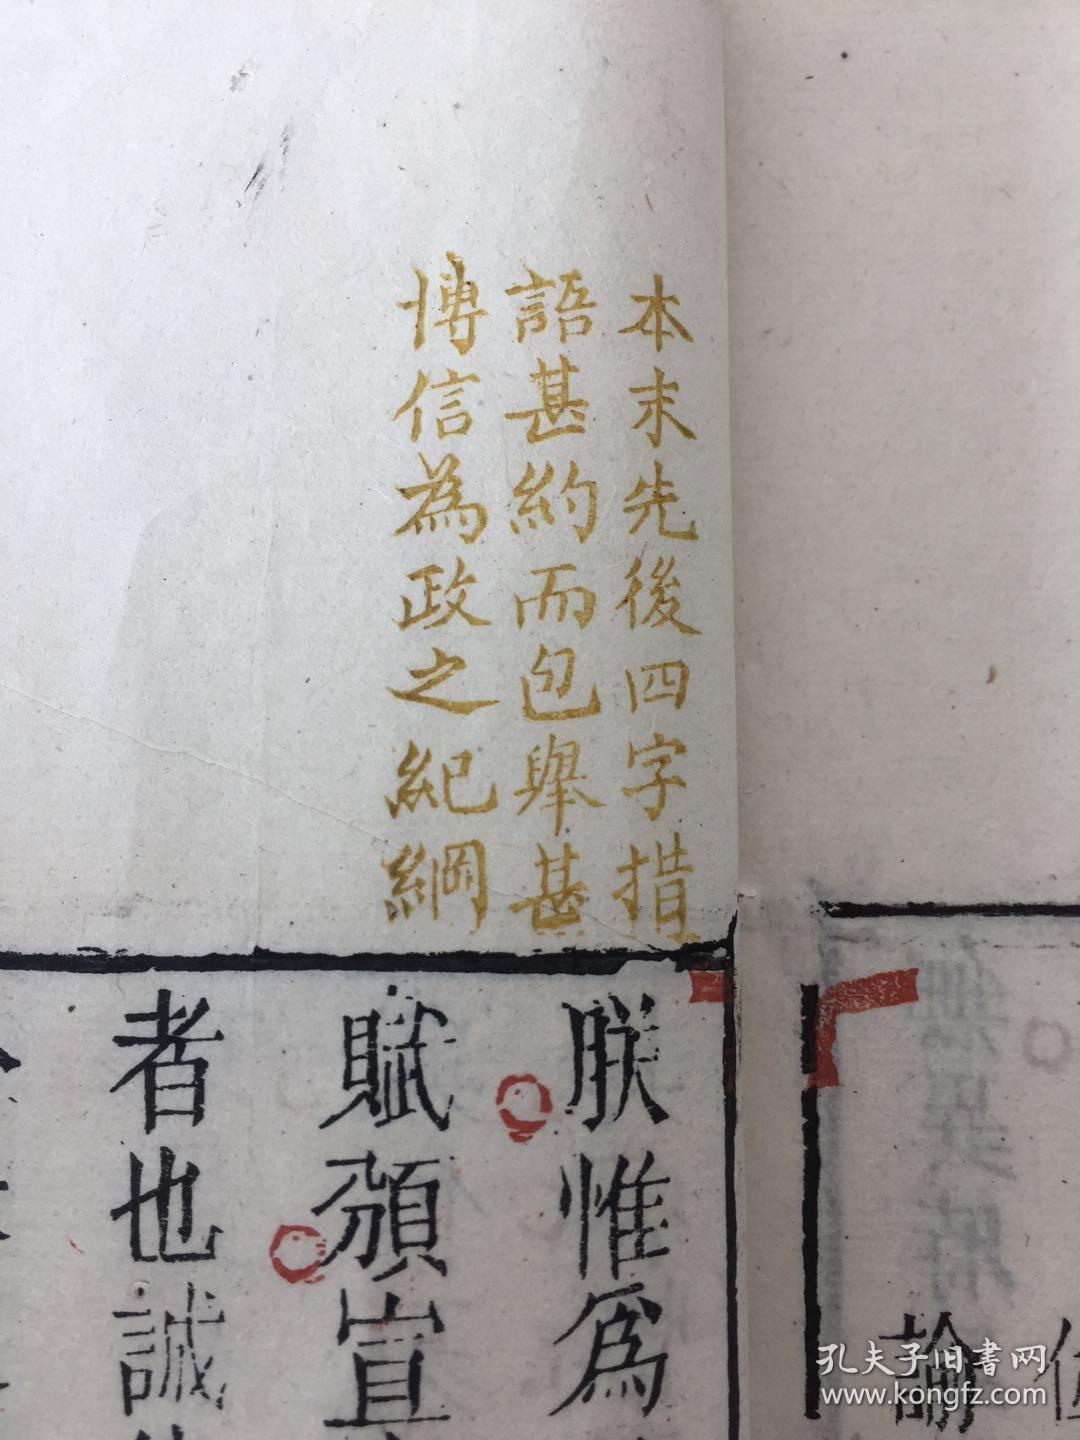 本末先後四字措
語甚約而包舉甚
博信為政之紀綱
朕惟爲
賦頒宣
者也誠
諭
孔夫子旧书网
www.kongfz.com